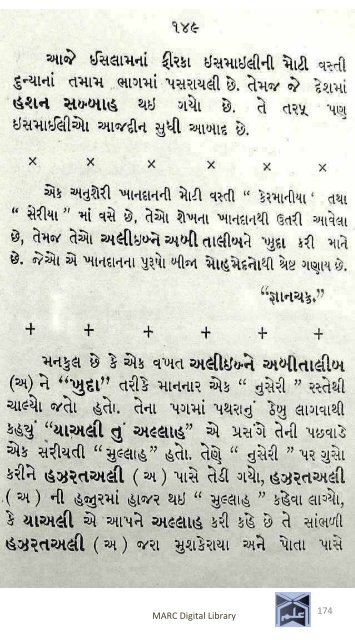 ૧૪૯
આજે ઈસલામનાં ફીરકા ઈસમાઈલીની મોટી વસ્તી
દુન્યાનાં તમામ ભાગમાં પસરાયલી છે. તેમજ જે દેશમાં
હશન સબ્બાહ થઇ ગયો છે. તે તરફ પણ
ઇસમાઈલીઓ આજદીન સુધી આબાદ છે.
× × × × × ×
એક અનુશેરી ખાનદાનની મોટી વસ્તી “ કેરમાનીયા ' તથા
“ સેરીયા ” માં વસે છે, તેઓ શેખના ખાનદાનથી ઉતરી આવેલા
છે, તેમજ તેઓ અલીઇબ્ને અબી તાલીબને ખુદા કરી માને
છે. જેઓ એ ખાનદાનના પુરૂષો બીજા મોહુમેદનોથી શ્રેષ્ટ ગણાય છે.
“જ્ઞાનચક્ર.”
+ + + + + +
મનકુલ છે કે એક વખત અલીઇબ્ને અબીતાલીબ
(અ) ને “ખુદા” તરીકે માનનાર એક “ નુસેરી ” રસ્તેથી
ચાલ્યો જતો હતો. તેના પગમાં પથરાનું ઠેબુ લાગવાથી
કહયું “યાઅલી તું અલ્લાહ” એ પ્રસંગે તેની પછવાડે
એક સરીયતી “મુલ્લાહ” હતો. તેણે “ નુસેરી ” પર ગુસો
કરીને હઝરતઅલી ( અ ) પાસે તેડી ગયો, હઝરતઅલી
( અ ) ની હજુરમાં હાજર થઇ “ મુલ્લાહ ” કહેવા લાગ્યો,
કે યાઅલી એ આપને અલ્લાહ કરી કહે છે તે સાંભળી
હઝરતઅલી ( અ ) જરા મુશકેરાયા અને પોતા પાસે
MARC Digital Library
174